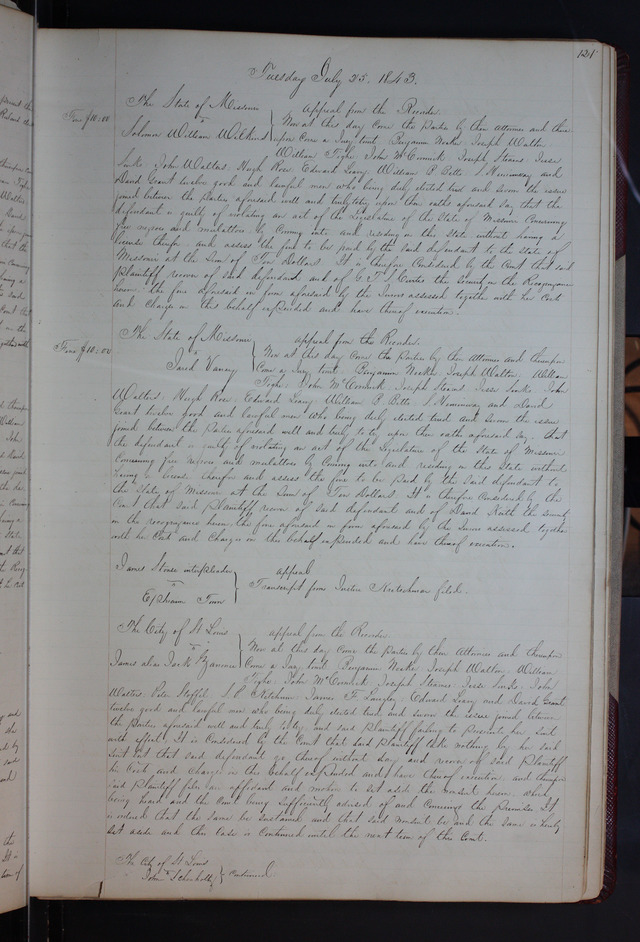 121
Tuesday July 25. 1843.
The State of Missouri appeal from the Recorder.
Fine $10.00
vs Now at this day come the Parties by their attorneys and thereupon
Solomon William Wilkins upon come a Jury towit Benjamin Nooke Joseph Walton
William Tighe John McCormick Joseph Steans Jesse
Sinks John Walters Hugh Rose Edward Leary William P. Betts S Hemingway and
David Grant twelve good and lawful men who being duly elected tried and sworn the issue
joined between the Parties aforesaid well and truly to try upon their oaths aforesaid say that the
defendant is guilty of violating an act of the Legislature of the State of Missouri Concerning
free negroes and mulattoes by coming into and residing in this State without having a
license therefor and assess the fine to be paid by the said defendant to the State of
Missouri at the Sum of Ten Dollars It is therefore Considered by the Court that said
plaintiff recover of said defendant and of the Security in the Recognizance
herein the fine aforesaid in form aforesaid by the Jurors assessed together with her Costs
and Charges in this behalf expended and have thereof execution.
The State of Missouri appeal from the Recorder.
Fine $10.00
vs Now at this day come the Parties by their Attorneys and thereupon
Jared Vancy Come a Jury towit Benjamin Nooke Joseph Walton William
Tighe John McCormick Joseph Steans Jesse Sinks John
Walters Hugh Rose Edward Leary William P. Betts S Hemingway and David
Grant twelve good and lawful men who being duly elected tried and sworn the issue
joined between the Parties aforesaid well and truly to try upon their oaths aforesaid say that
the defendant is guilty of violating an act of the Legislature of the State of Missouri
Concerning free negroes and mulattoes by Coming into and residing in this State without
having a license therefor and assess the fine to be paid by the said defendant to
the State of Missouri at the Sum of Ten Dollars It is therefore Considered by the
Court that said Plaintiff recover of said defendant and of David Keith the Security
in the recognizance herein the fine aforesaid in form aforesaid by the Jurors assessed together
with her Costs and Charges in this behalf expended and have thereof execution.
James Stouse interpleader appeal
vs Transcript from Justice Kretschmar filed.
Ephraim Town
The City of St Louis appeal from the Recorder
vs Now at this day come the Parties by their Attorneys and thereupon
James alias Jack Come a Jury towit Benjamin Nooke Joseph Walton William
Tighe John McCormick Joseph Steans Jesse Sinks John
Walters Peter S P Ketchum James T. Edward Leary and David Grant
twelve good and lawful men who being duly elected tried and sworn the issue joined between
the Parties aforesaid well and truly to try and said Plaintiff failing to prosecute her Suit
with effect It is Considered by the Court that said Plaintiff take nothing by her said
Suit but that said defendant go thereof without day and recover of said Plaintiff
his Costs and Charges in this behalf expended and have thereof execution and thereupon
said Plaintiff files an affidavit and motion to set aside the nonsuit herein which
being heard and the Court being sufficiently advised of and Concerning the Premises It
is ordered that the same be sustained and that said nonsuit be and the same is hereby
set aside and this Case is Continued until the next term of this Court.
The City of St Louis
vs Continued
John Schenholtz